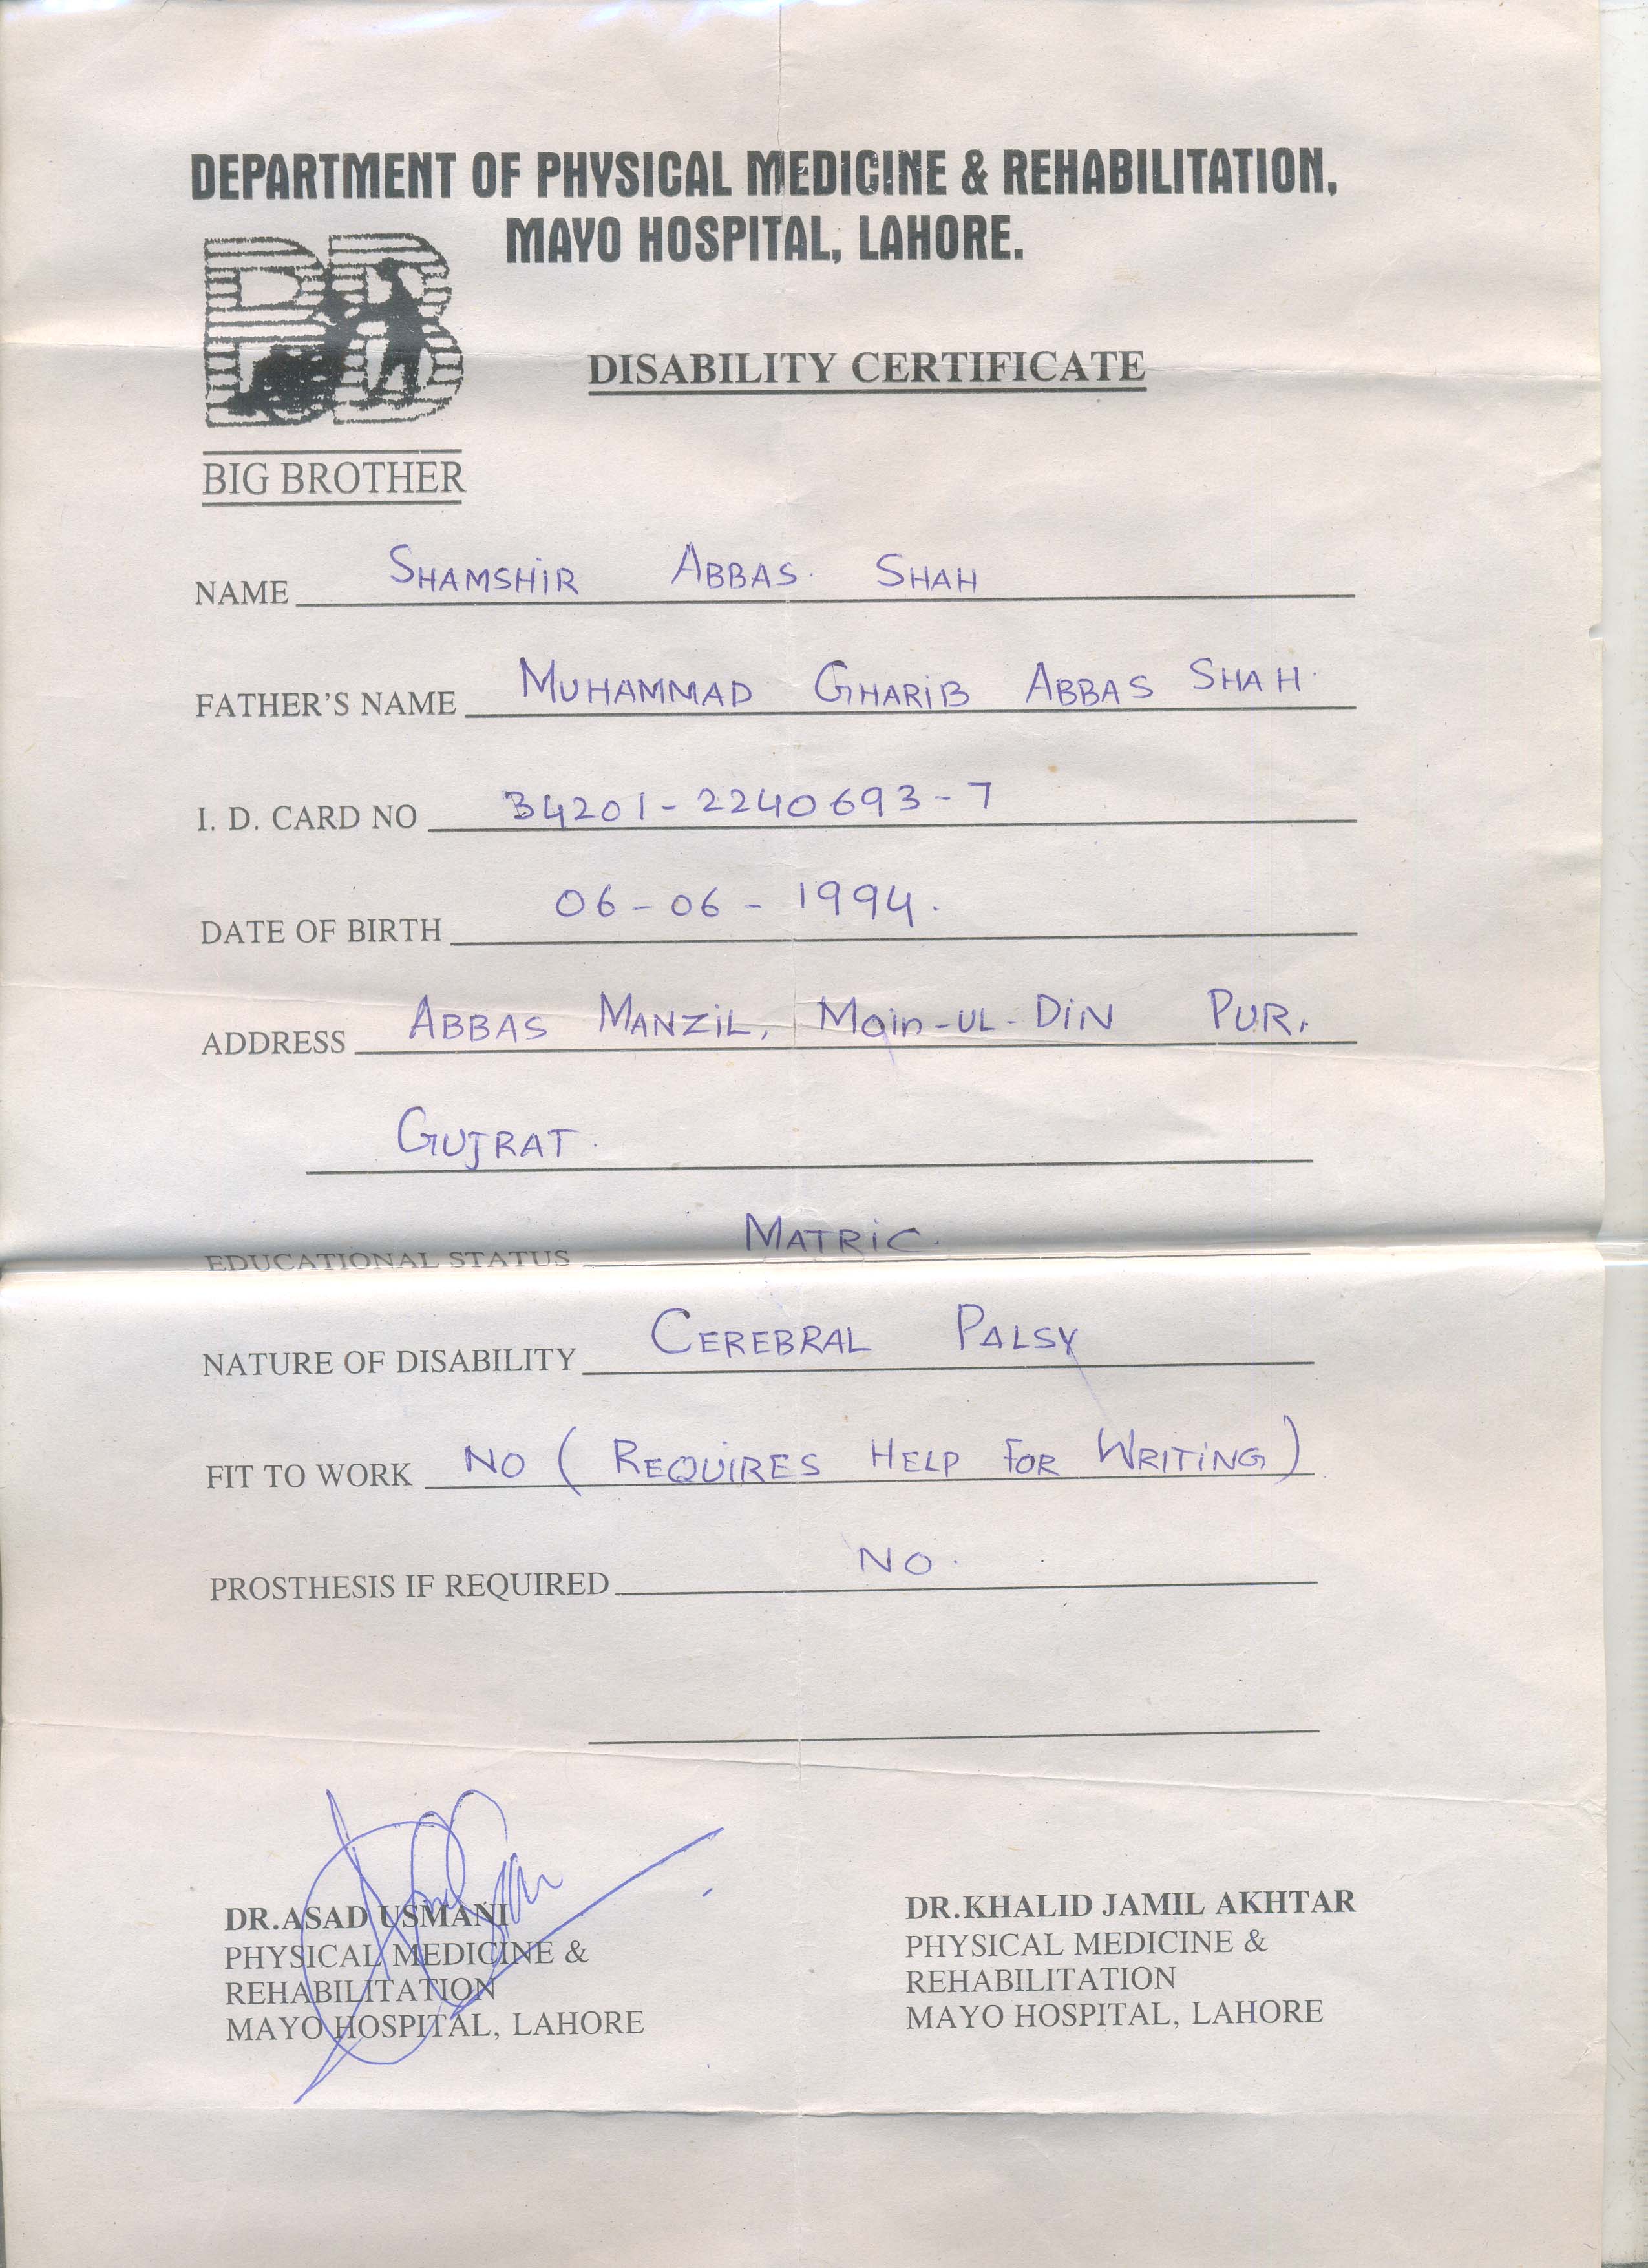 DEPARTMENT OF PHYSICAL MEDICINE & REHABILITATION,
MAYO HOSPITAL, LAHORE.
BB
DISABILITY CERTIFICATE
BIG BROTHER
NAME SHAMSHiR ABBAS. SHAH
FATHER'S NAME MUHAMMAD GHARiB ABBAS SHAH.
I. D. CARD NO 34201-2240693-7
DATE OF BIRTH 06-06-1994.
ADDRESS ABBAS MANZiL, Moin-UL-DiN PUR,
GUJRAT.
EDUCATIONAL STATUS MATRiC.
NATURE OF DISABILITY CEREBRAL PALSY
FIT TO WORK NO (REQUIRES HELP FOR WRITiNG)
PROSTHESIS IF REQUIRED NO.
DR.ASAD USMANI
PHYSICAL MEDICINE &
REHABILITATION
MAYO HOSPITAL, LAHORE
DR.KHALID JAMIL AKHTAR
PHYSICAL MEDICINE &
REHABILITATION
MAYO HOSPITAL, LAHORE